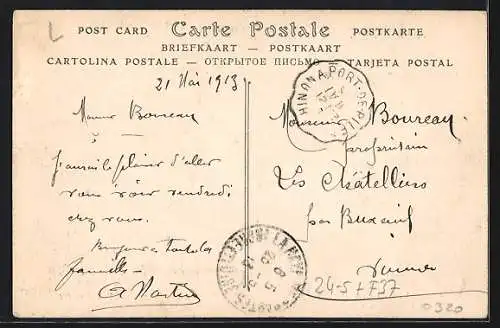 L
POST CARD Carte Postale POSTKARTE
BRIEFKAART — POSTKAART
CARTOLINA POSTALE — ОТКРЫТОЕ ПИСЬМО — TARJETA POSTAL
21 Mai 1913
CHINON A PORT-DE-PILES
Boureau
Monsieur Boureau
propriétaire
J'aurai le plaisir d'aller
Les Châtelliers
vous voir vendredi
par Buxeuil
chez vous.
Vienne
Bonjour à toute la
famille
A Martin
LA HAYE-DESCARTES
24-5 + F37
0320